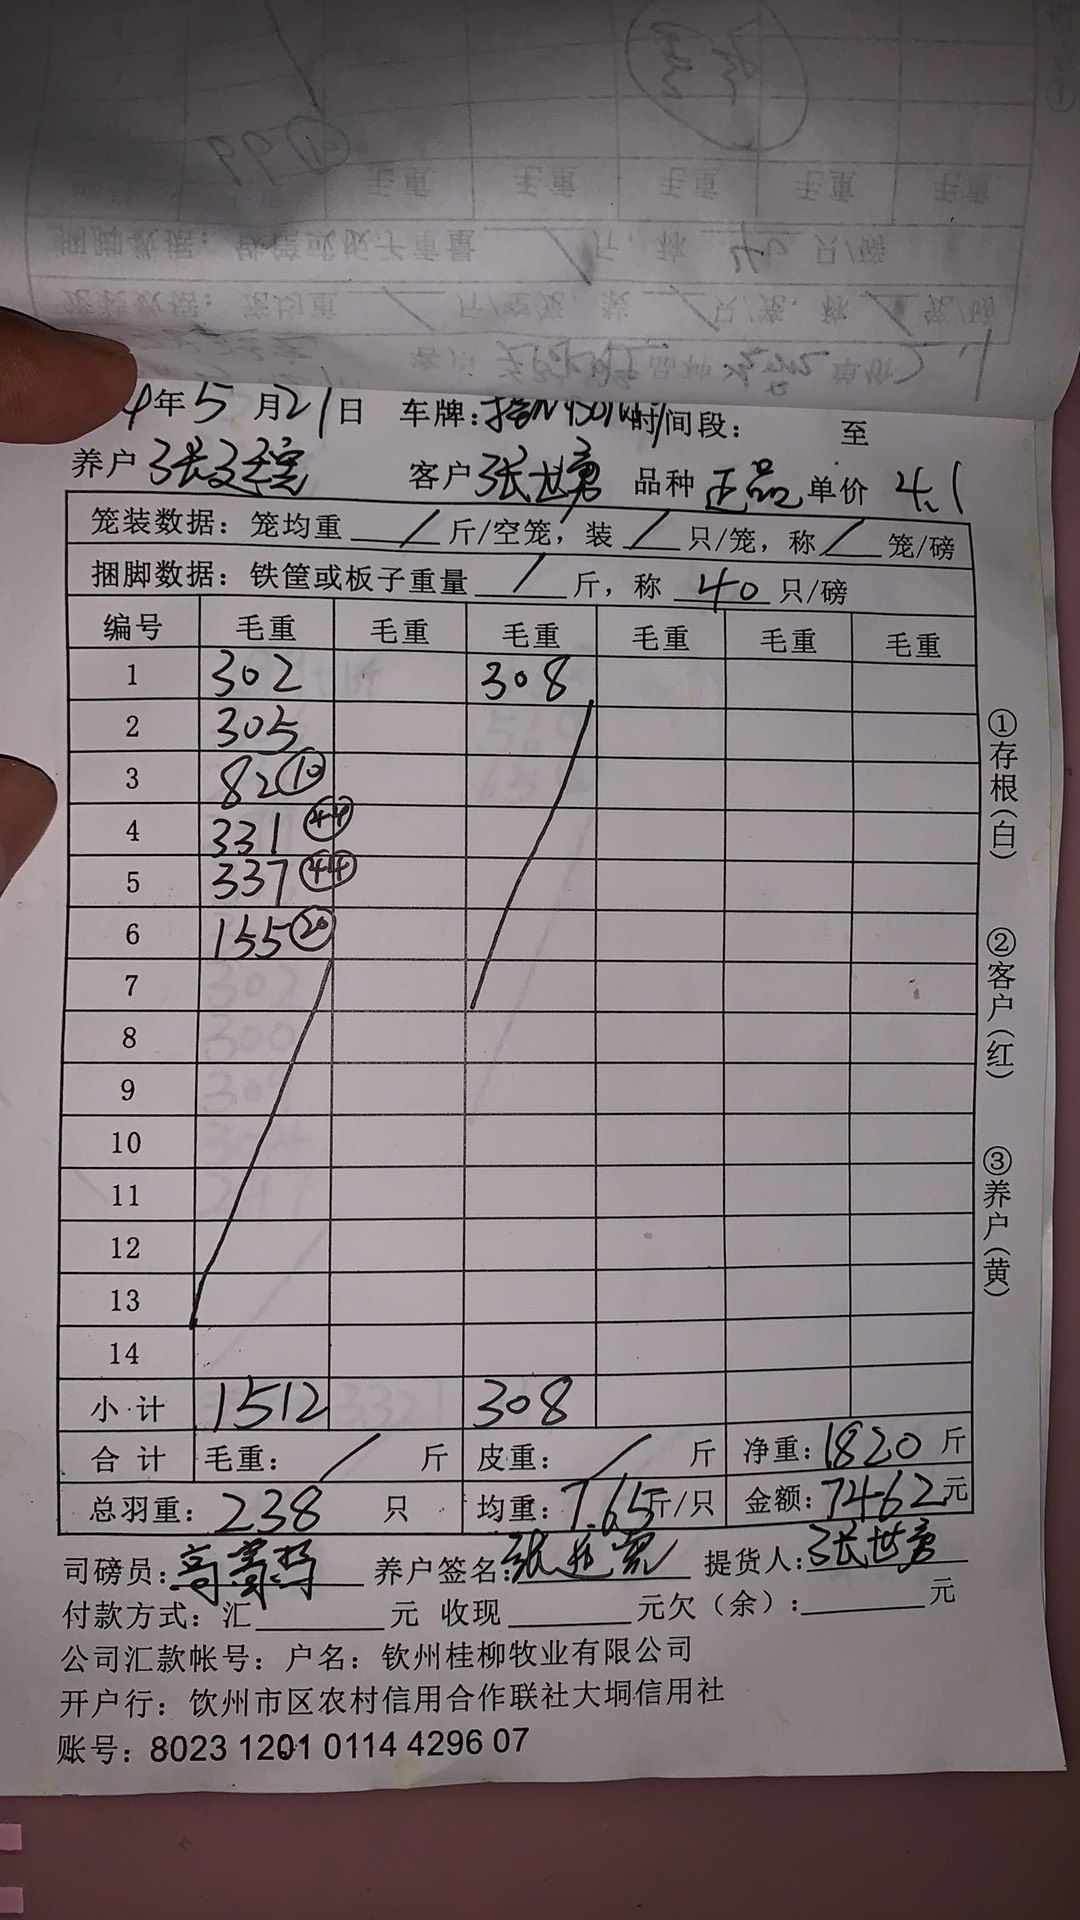 4年5月21日 车牌: 时间段: 至
养户 张 客户 张世勇 品种 正品 单价 4.1
笼装数据: 笼均重 / 斤/空笼, 装 / 只/笼, 称 / 笼/磅
捆脚数据: 铁筐或板子重量 / 斤, 称 40 只/磅
编号 毛重 毛重 毛重 毛重 毛重 毛重
1 302 308
2 305
3 82 ⑩
4 331 44
5 337 44
6 155 ⑳
7
8
9
10
11
12
13
14
小计 1512 308
合计 毛重: / 斤 皮重: / 斤 净重: 1820 斤
总羽重: 238 只 均重: 7.65 斤/只 金额: 7462 元
司磅员: 高 养户签名: 张 提货人: 张世勇
付款方式: 汇 元 收现 元欠(余): 元
公司汇款帐号: 户名: 钦州桂柳牧业有限公司
开户行: 钦州市区农村信用合作联社大垌信用社
账号: 8023 1201 0114 4296 07
①存根(白)
②客户(红)
③养户(黄)